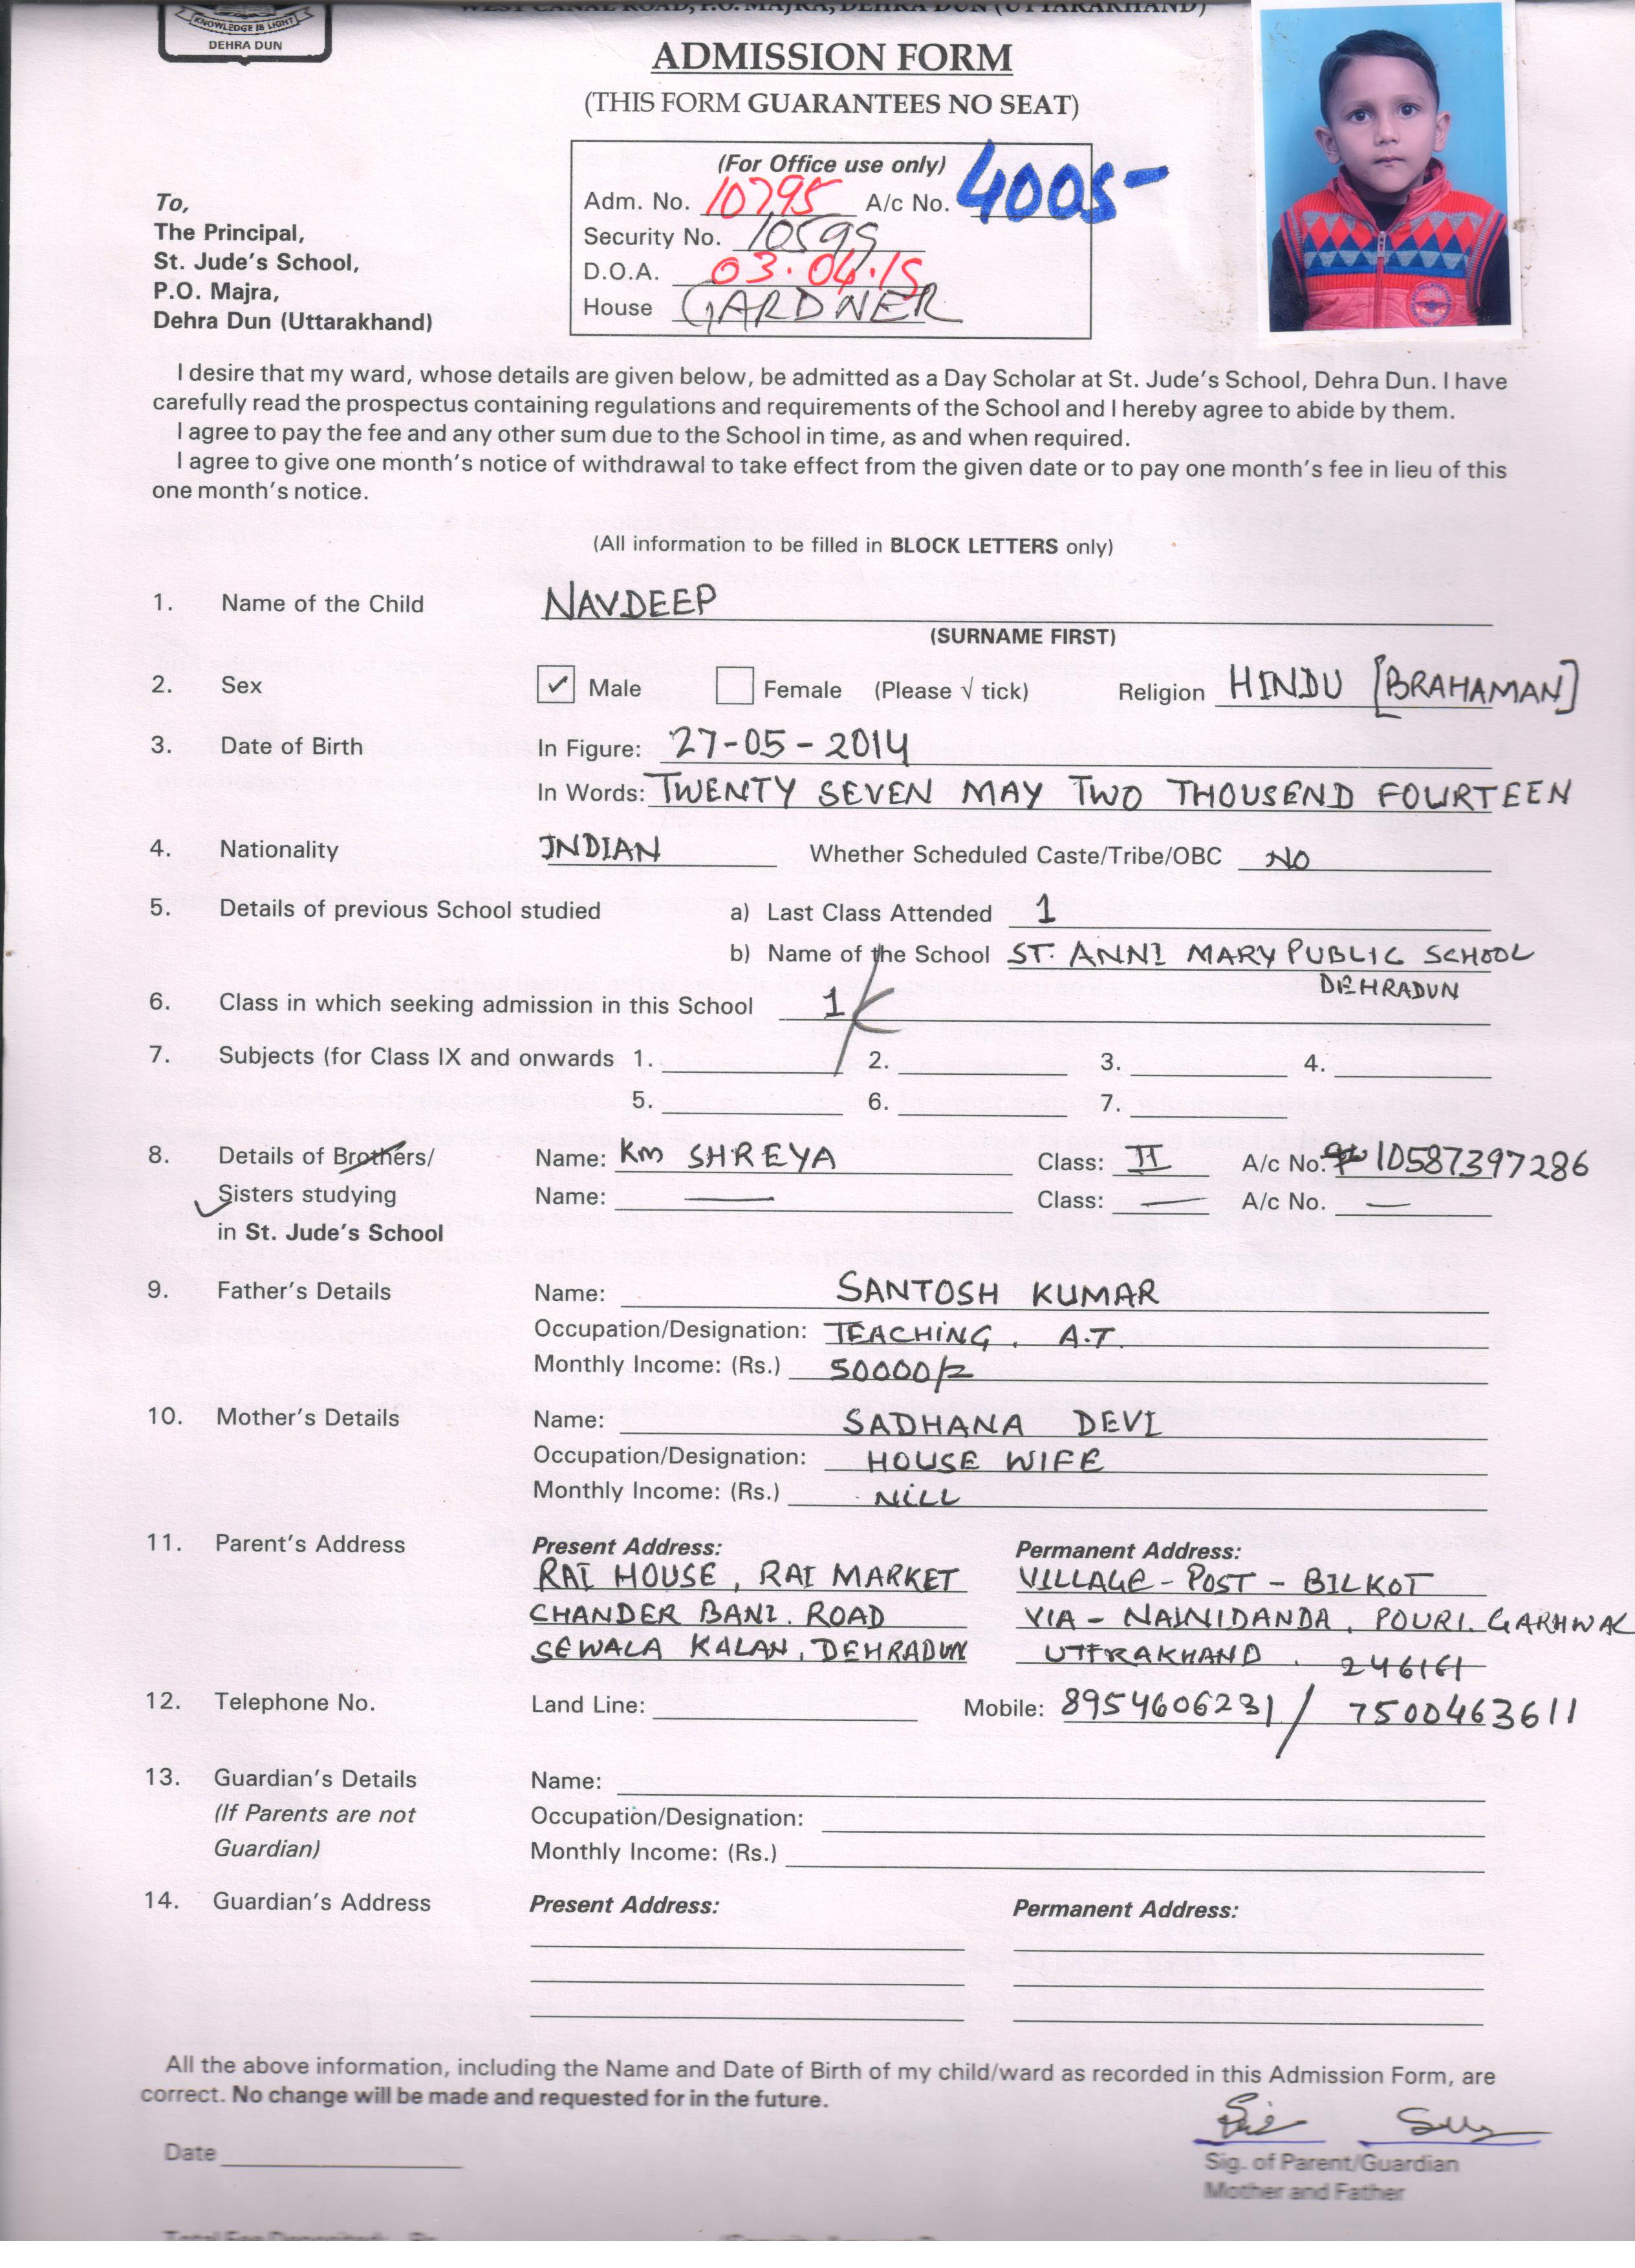 WEST CANAL ROAD, P.O. MAJRA, DEHRA DUN (UTTARAKHAND)
KNOWLEDGE IS LIGHT
DEHRA DUN
ADMISSION FORM
(THIS FORM GUARANTEES NO SEAT)
(For Office use only)
Adm. No. 10795 A/c No. 4005-
Security No. 10599
D.O.A. 03.04.15
House GARDNER
To,
The Principal,
St. Jude's School,
P.O. Majra,
Dehra Dun (Uttarakhand)
I desire that my ward, whose details are given below, be admitted as a Day Scholar at St. Jude's School, Dehra Dun. I have
carefully read the prospectus containing regulations and requirements of the School and I hereby agree to abide by them.
I agree to pay the fee and any other sum due to the School in time, as and when required.
I agree to give one month's notice of withdrawal to take effect from the given date or to pay one month's fee in lieu of this
one month's notice.
(All information to be filled in BLOCK LETTERS only)
1. Name of the Child NAVDEEP
(SURNAME FIRST)
2. Sex ✓ Male Female (Please √ tick) Religion HINDU [BRAHAMAN]
3. Date of Birth In Figure: 27-05-2014
In Words: TWENTY SEVEN MAY TWO THOUSEND FOURTEEN
4. Nationality INDIAN Whether Scheduled Caste/Tribe/OBC NO
5. Details of previous School studied a) Last Class Attended 1
b) Name of the School ST. ANNI MARY PUBLIC SCHOOL
DEHRADUN
6. Class in which seeking admission in this School 1
7. Subjects (for Class IX and onwards 1. 2. 3. 4.
5. 6. 7.
8. Details of Brothers/ Name: Km SHREYA Class: II A/c No. 10587397286
Sisters studying Name: — Class: — A/c No. —
in St. Jude's School
9. Father's Details Name: SANTOSH KUMAR
Occupation/Designation: TEACHING, A.T.
Monthly Income: (Rs.) 50000/=
10. Mother's Details Name: SADHANA DEVI
Occupation/Designation: HOUSE WIFE
Monthly Income: (Rs.) NILL
11. Parent's Address Present Address: Permanent Address:
RAI HOUSE, RAI MARKET VILLAGE-POST-BILKOT
CHANDER BANI. ROAD VIA-NAINIDANDA, POURI.GARHWAL
SEWALA KALAN, DEHRADUN UTTRAKHAND. 246161
12. Telephone No. Land Line: Mobile: 8954606231 / 7500463611
13. Guardian's Details Name:
(If Parents are not Occupation/Designation:
Guardian) Monthly Income: (Rs.)
14. Guardian's Address Present Address: Permanent Address:
All the above information, including the Name and Date of Birth of my child/ward as recorded in this Admission Form, are
correct. No change will be made and requested for in the future.
Date
Sig. of Parent/Guardian
Mother and Father